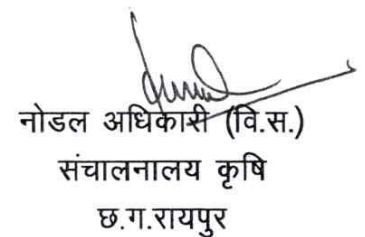 नोडल अधिकारी (वि.स.)
संचालनालय कृषि
छ.ग.रायपुर